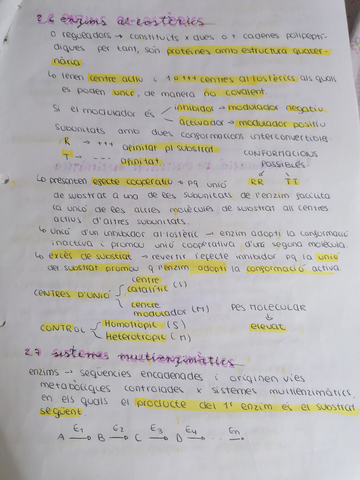 2.6 enzims al·lostèrics
o reguladors → constituïts x dues o + cadenes polipeptí-
diques per tant, són proteïnes amb estructura quater-
nària
↳ tenen centre actiu i 1 o +++ centres al·lostèrics als quals
es poden unir, de manera no covalent.
Si el modulador és inhibidor → modulador negatiu
activador → modulador positiu
Subunitats amb dues conformacions interconvertibles
R → +++ afinitat pl substrat
T → --- afinitat
CONFORMACIONS
POSSIBLES
RR TT
↳ presenten efecte cooperatiu → pq unió
de substrat a una de les subunitats de l'enzim facilita
la unió de les altres molècules de substrat als centres
actius d'altres subunitats.
↳ Unió d'un inhibidor al·lostèric → enzim adopti la conformació
inactiva i promou unió cooperativa d'una segona molècula.
↳ excés de substrat → reverteix l'efecte inhibidor pq la unió
del substrat promou q l'enzim adopti la conformació activa
CENTRES D'UNIÓ centre catalític (S)
centre modulador (M)
PES MOLECULAR
↳ elevat
CONTROL Homotròpic (S)
Heterotròpic (M)
2.7 sistemes multienzimàtics
enzims → seqüències encadenades i originen vies
metabòliques controlades x sistemes multienzimàtics,
en els quals el producte del 1r enzim és el substrat
següent.
E1 E2 E3 E4 En
A → B → C → D → ... →